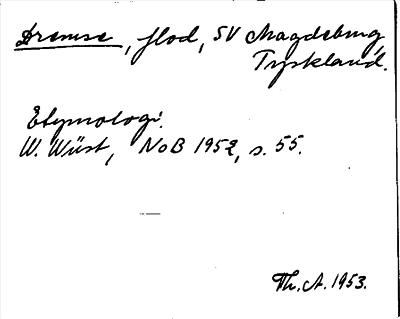 Dremse, flod, SV Magdeburg,
Tyskland.
Etymologi:
W. Wüst, NoB 1952, s. 55.
Th. A. 1953.